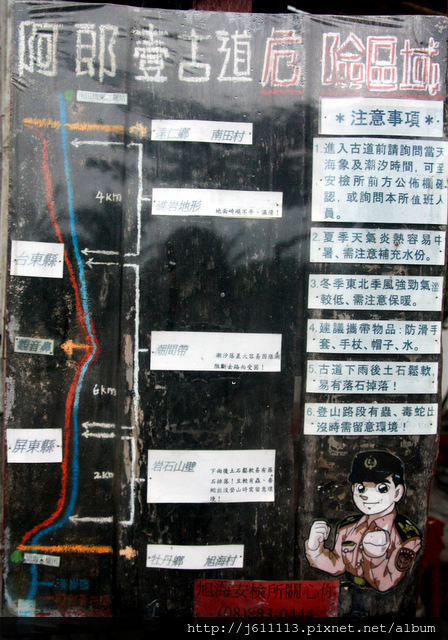 阿郎壹古道危險區域
＊注意事項＊
1.進入古道前請詢問當天
海象及潮汐時間,可至
安檢所前方公佈欄
認,或詢問本所值班人
員。
2.夏季天氣炎熱容易中
暑、需注意補充水份。
3.冬季東北季風強勁氣溫
較低、需注意保暖。
4.建議攜帶物品:防滑手
套、手杖、帽子、水。
5.古道下雨後土石鬆軟
易有落石掉落!
6.登山路段有蟲、毒蛇出
沒時需留意環境!
達仁鄉 南田村
4km
礁岩地形
台東縣
觀音鼻
潮間帶
6km
屏東縣
岩石山壁
下雨後土石鬆軟易有落
2km
牡丹鄉 旭海村
旭海安檢所關心你
(08)883-0444
http://j611113.pixnet.net/album